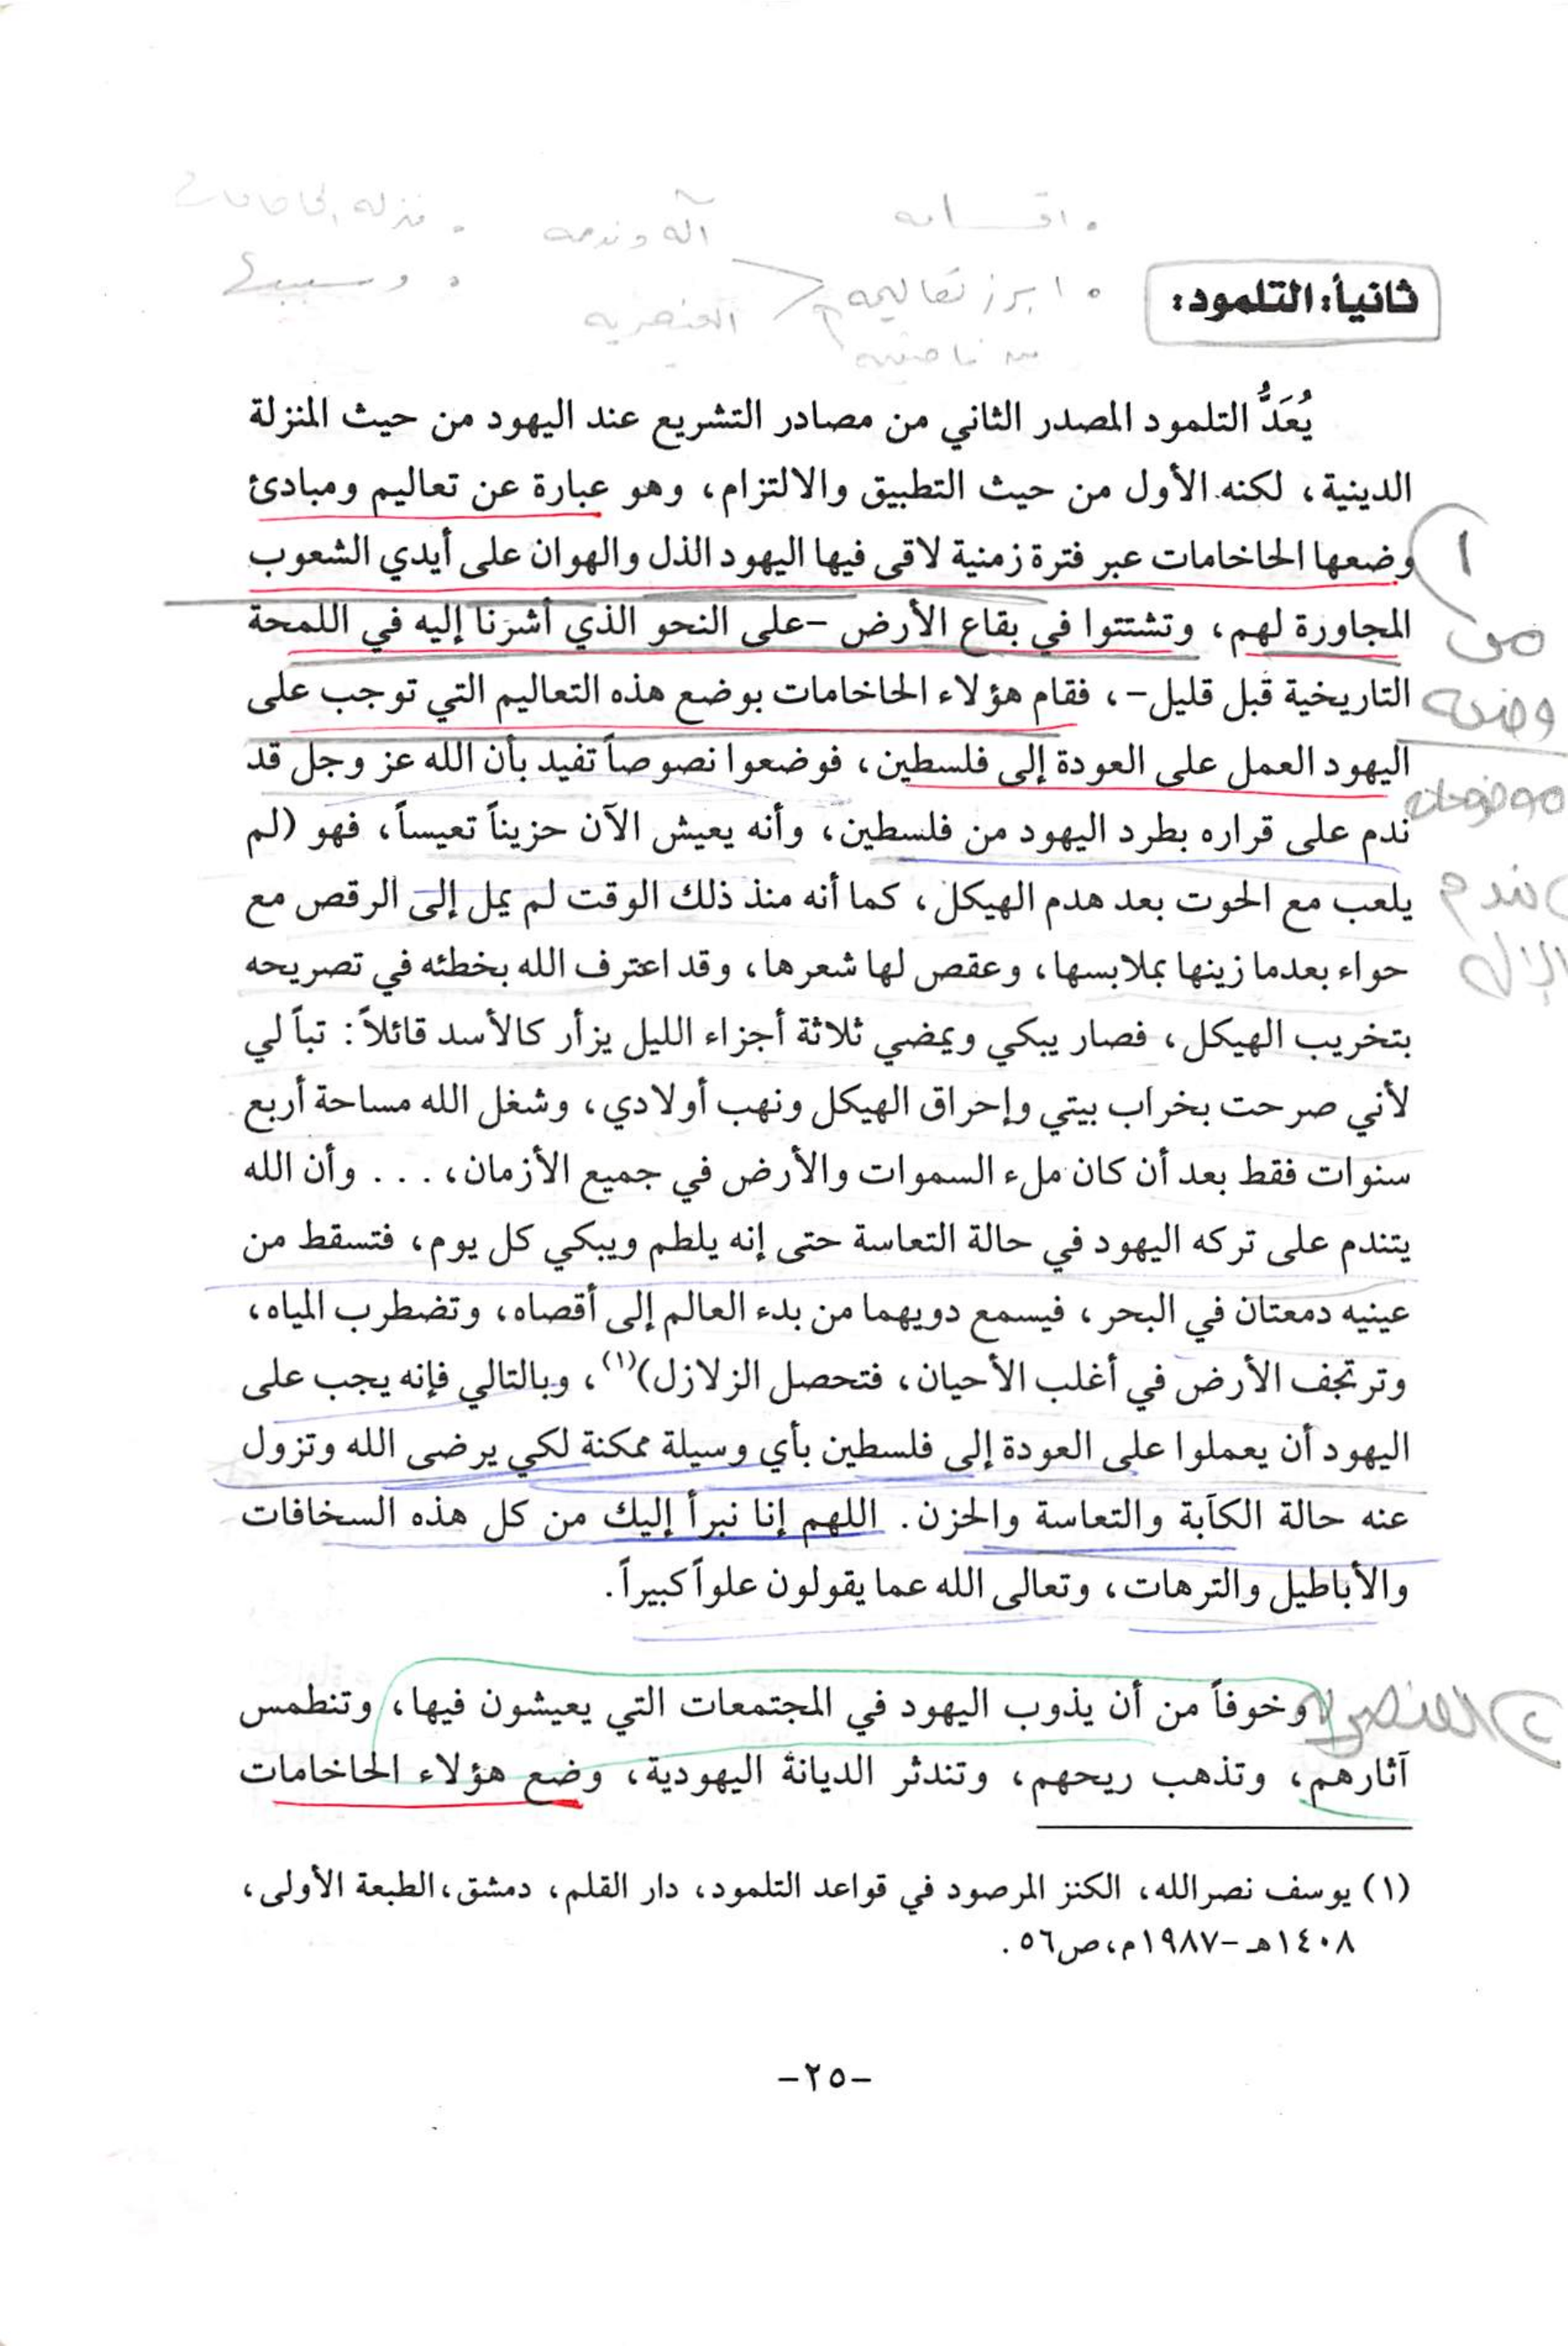 اقسامه
ابرز تعاليمه
العنصرية
ثانياً: التلمود:
يُعَدُّ التلمود المصدر الثاني من مصادر التشريع عند اليهود من حيث المنزلة
الدينية، لكنه الأول من حيث التطبيق والالتزام، وهو عبارة عن تعاليم ومبادئ
وضعها الحاخامات عبر فترة زمنية لاقى فيها اليهود الذل والهوان على أيدي الشعوب
المجاورة لهم، وتشتتوا في بقاع الأرض -على النحو الذي أشرنا إليه في اللمحة
التاريخية قبل قليل-، فقام هؤلاء الحاخامات بوضع هذه التعاليم التي توجب على
اليهود العمل على العودة إلى فلسطين، فوضعوا نصوصاً تفيد بأن الله عز وجل قد
ندم على قراره بطرد اليهود من فلسطين، وأنه يعيش الآن حزيناً تعيساً، فهو (لم
يلعب مع الحوت بعد هدم الهيكل، كما أنه منذ ذلك الوقت لم يمل إلى الرقص مع
حواء بعدما زينها بملابسها، وعقص لها شعرها، وقد اعترف الله بخطئه في تصريحه
بتخريب الهيكل، فصار يبكي ويمضي ثلاثة أجزاء الليل يزأر كالأسد قائلاً: تباً لي
لأني صرحت بخراب بيتي وإحراق الهيكل ونهب أولادي، وشغل الله مساحة أربع
سنوات فقط بعد أن كان ملء السموات والأرض في جميع الأزمان، ... وأن الله
يتندم على تركه اليهود في حالة التعاسة حتى إنه يلطم ويبكي كل يوم، فتسقط من
عينيه دمعتان في البحر، فيسمع دويهما من بدء العالم إلى أقصاه، وتضطرب المياه،
وترتجف الأرض في أغلب الأحيان، فتحصل الزلازل)(١)، وبالتالي فإنه يجب على
اليهود أن يعملوا على العودة إلى فلسطين بأي وسيلة ممكنة لكي يرضى الله وتزول
عنه حالة الكآبة والتعاسة والحزن. اللهم إنا نبرأ إليك من كل هذه السخافات
والأباطيل والترهات، وتعالى الله عما يقولون علواً كبيراً.
وخوفاً من أن يذوب اليهود في المجتمعات التي يعيشون فيها، وتنطمس
آثارهم، وتذهب ريحهم، وتندثر الديانة اليهودية، وضع هؤلاء الحاخامات
(١) يوسف نصرالله، الكنز المرصود في قواعد التلمود، دار القلم، دمشق، الطبعة الأولى،
١٤٠٨هـ-١٩٨٧م، ص٥٦.
-٢٥-